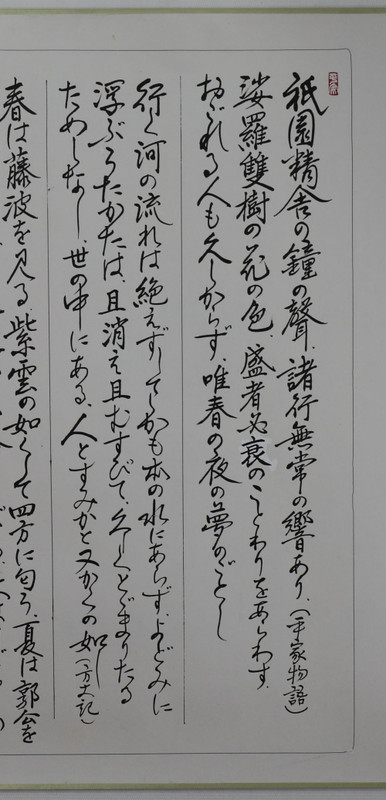 祇園精舎の鐘の聲、諸行無常の響あり、(平家物語)
娑羅雙樹の花の色、盛者必衰のことわりをあらわす、
おごれる人も久しからず、唯春の夜の夢のごとし
行く河の流れは絶えずしてしかも本の水にあらず、よどみに
浮ぶうたかたは、且消え且むすびて、久しくとどまりたる
ためしなし、世の中にある、人とすみかと又かくの如し(方丈記)
春は藤波を見る、紫雲の如くして四方に匂う、夏は郭公を